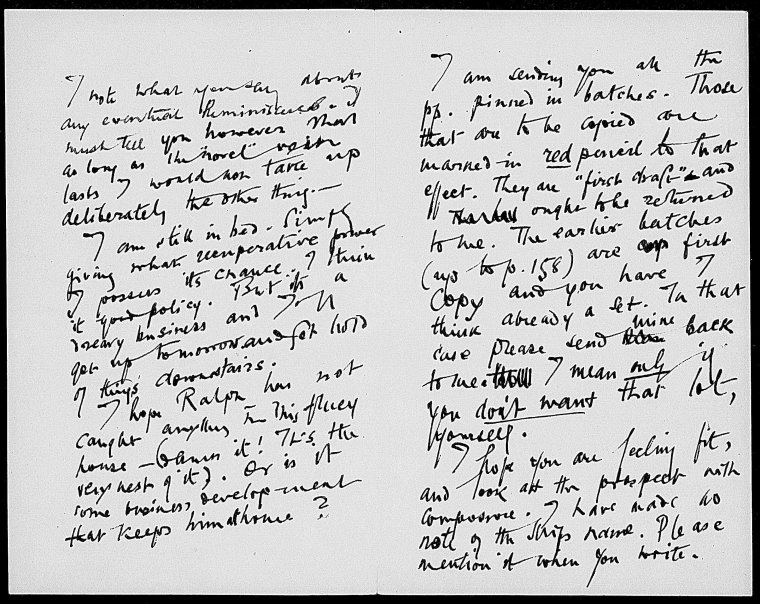 I note what you say about
any eventual Reminiscences. I
must tell you however that
as long as the "novel" vein
lasts I would not take up
deliberately the other thing.—
I am still in bed. Simply
giving what recuperative power
I possess its chance. I think
it good policy. But it's a
dreary business and I'll
get up tomorrow and get hold
of things downstairs.
I hope Ralph has not
caught anything in this fluey
house — (damn it! It's the
very nest of it). Or is it
some business development
that keeps him at home?
I am sending you all the
pp. pinned in batches. Those
that are to be copied are
marked in red pencil to that
effect. They are "first draft" and
ought to be returned
to me. The earlier batches
(up to p. 158) are first
Copy and you have I
think already a set. In that
case please send mine back
to me. I mean only if
you don't want that lot,
yourself.
I hope you are feeling fit,
and look at the prospect with
composure. I have made no
note of the ship's name. Please
mention it when you write.